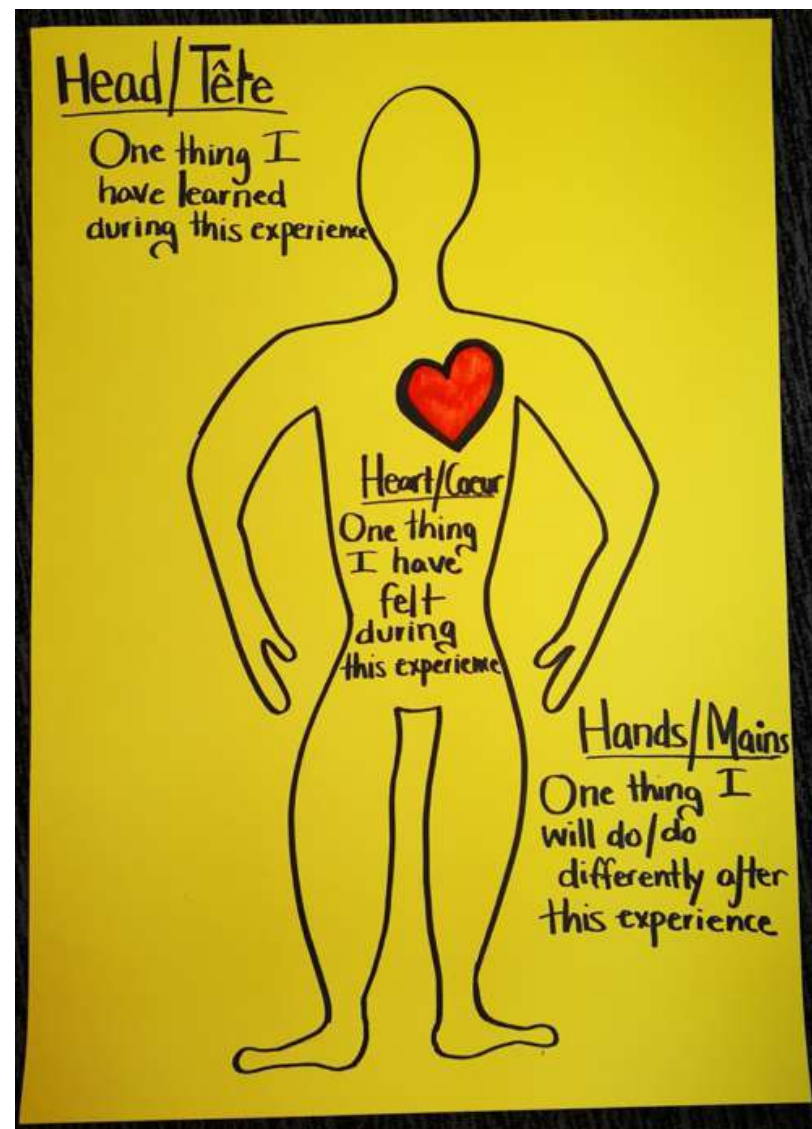 Head/Tête
One thing I
have learned
during this experience
Heart/Coeur
One thing
I have
felt
during
this experience
Hands/Mains
One thing I
will do/do
differently after
this experience